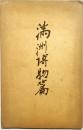 満洲博物篇